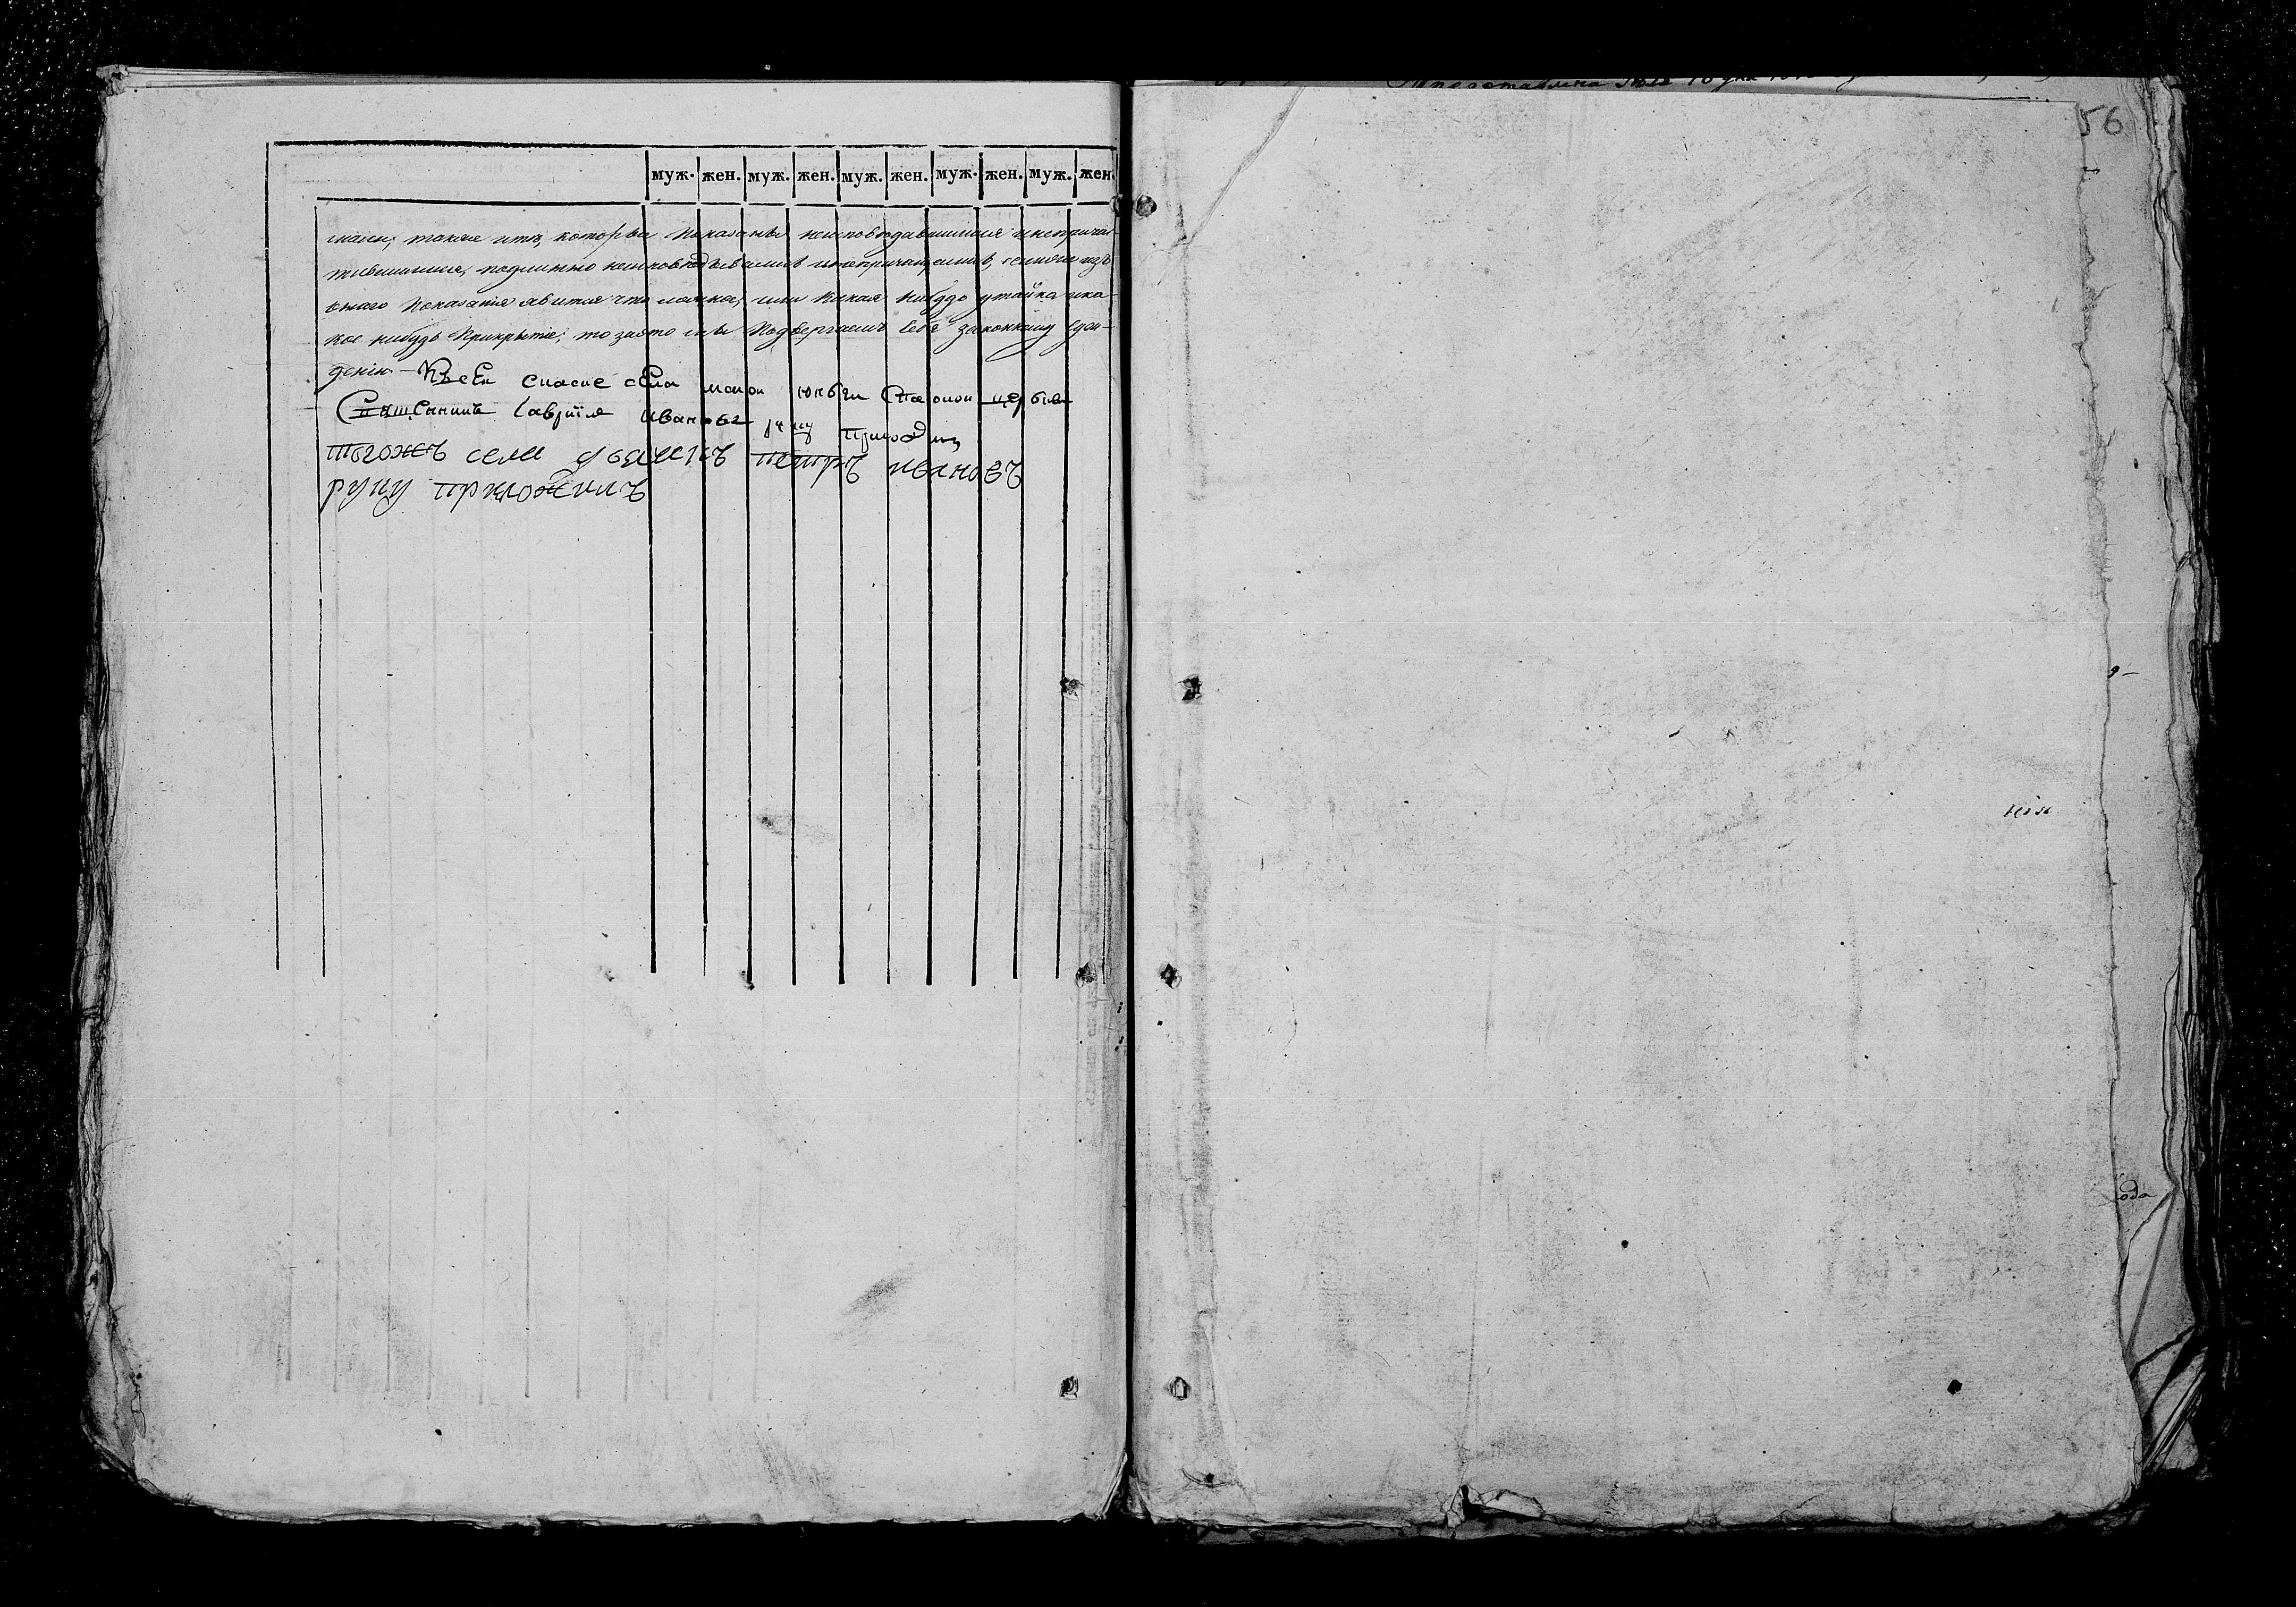 муж. жен. муж. жен. муж. жен. муж. жен. муж. жен.
также итѣ, которые показаны неисповѣдавшимися инепричас-
тившимися, подлинно неисповѣдывались инепричащались, еслиже изъ
онаго показанія явится что ложно, или какая нибудь утайка ика-
кое нибудь Прикрытіе; то зато мы Подвергаемъ себя законному суж-
денію. – Къ сей
Священникъ Гавріилъ Ивановъ руку приложилъ
тогожъ села дьячекъ петръ ивановъ
руку приложилъ
56
нія
ода